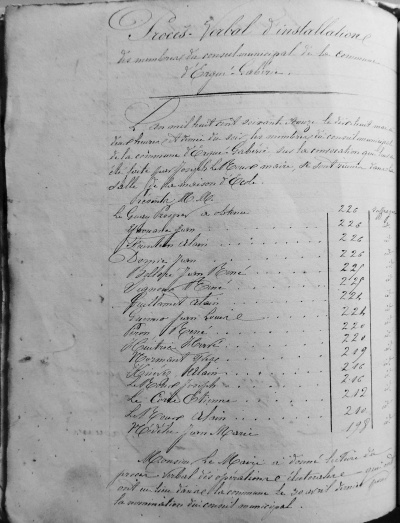 Procès-Verbal d'installation
des membres du conseil municipal de la commune
d'Ergué-Gabéric.
L'an mil huit cent soixante
heures du soir, les membres du conseil municipal
de la commune d'Ergué-Gabéric sur la convocation qui
été faite par Joseph Le Roux maire, se sont réunis dans la
salle de la maison d'école
Présents M.M.
Le Guay Prosper 226 suffrages
Jean 226
Alain 226
Jean 226
Jean René 225
René 225
Guillamet Alain 224
Jean Louis 224
René 220
Huitric Hervé 220
Normant 219
Alain 216
Le Roux Joseph 216
Le Corre Etienne 212
Le Roux Alain 210
Nédélec Jean Marie 198
Monsieur Le Maire a donné lecture du
procès verbal des opérations électorales qui
ont eu lieu dans la commune le 30 avril dernier pour
la nomination du conseil municipal.